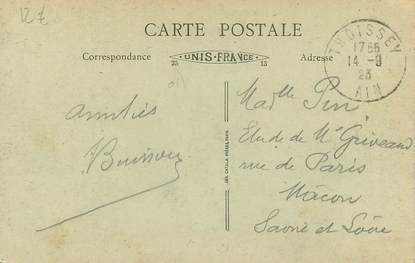 12 €
CARTE POSTALE
Correspondance
UNIS-FRANCE
21 13
Adresse
THOISSEY
17 55
14 - 9
23
AIN
Amitiés
Buisson
Madlle Pin
Etude de Me Griveaud
rue de Paris
Mâcon
Saone et Loire